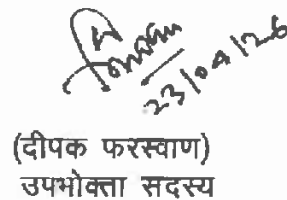 23/04/26
(दीपक फरस्वाण)
उपभोक्ता सदस्य